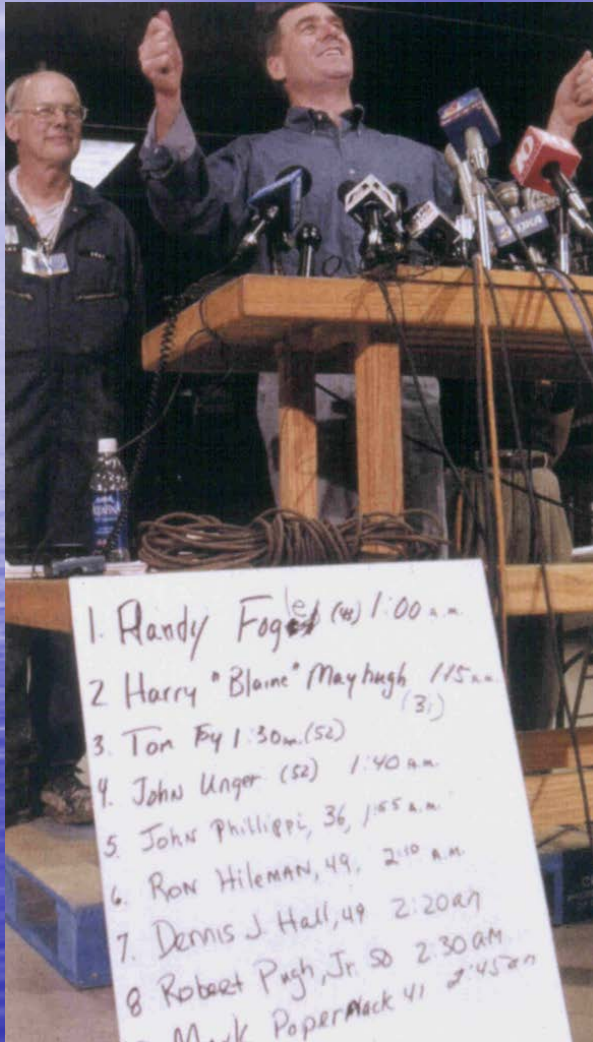 1. Randy Fogle (43) 1:00 a.m.
2 Harry "Blaine" Mayhugh 1:15 a.m.
(31)
3. Tom Foy 1:30 a.m. (52)
4. John Unger (52) 1:40 a.m.
5. John Phillippi, 36, 1:55 a.m.
6. Ron Hileman, 49, 2:10 a.m.
7. Dennis J. Hall, 49 2:20am
8 Robert Pugh, Jr. 50 2:30 am
Mark Popernack 41 2:45am